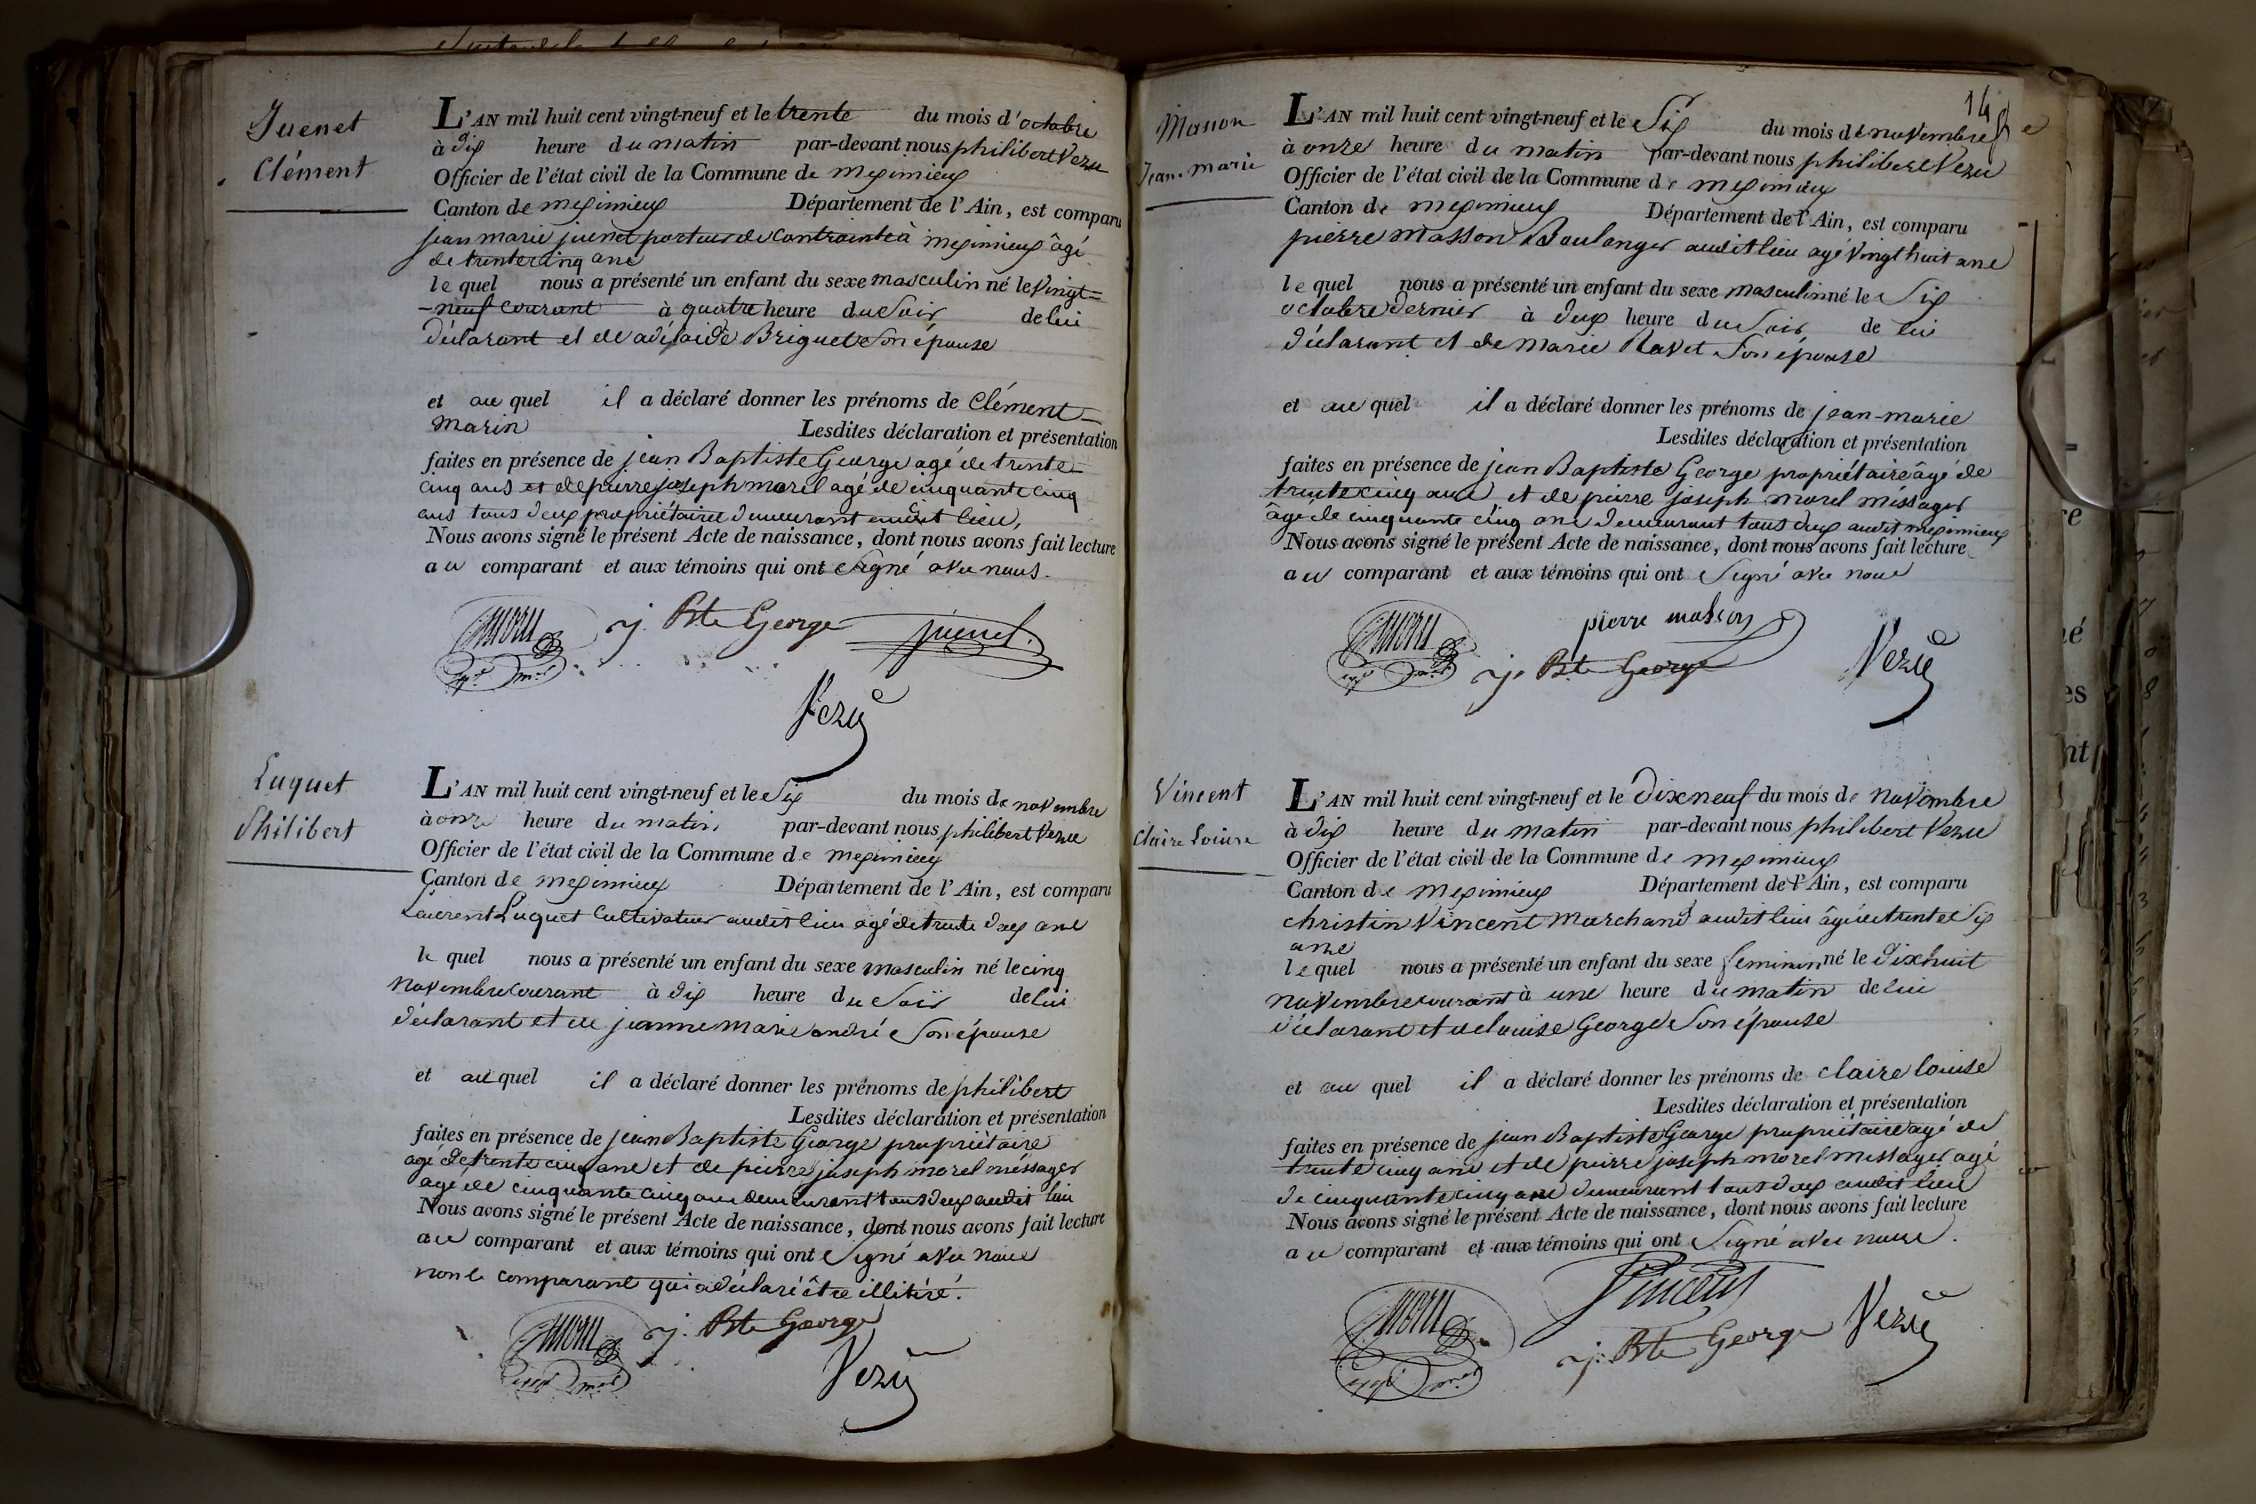 Juenet
Clément
L'AN mil huit cent vingt-neuf et le trente du mois d'octobre
à dix heure du matin par-devant nous philibert Vezu
Officier de l'état civil de la Commune de meximieux
Canton de meximieux Département de l'Ain, est comparu
jean marie juenet porteur de contrainte à meximieux âgé
de trente cinq ans
lequel nous a présenté un enfant du sexe masculin né le vingt-
-neuf courant à quatre heure du Soir de lui
déclarant et de adélaide Briguet Son épouse
et au quel il a déclaré donner les prénoms de Clément
Marin Lesdites déclaration et présentation
faites en présence de jean Baptiste George agé de trente
cinq ans et de pierre joseph morel agé de cinquante cinq
ans tous deux propriétaires demeurant audit lieu,
Nous avons signé le présent Acte de naissance, dont nous avons fait lecture
au comparant et aux témoins qui ont Signé avec nous.
j. Bte George juenet
Vezu
Luquet
Philibert
L'AN mil huit cent vingt-neuf et le Six du mois de novembre
à onze heure du matin par-devant nous philibert Vezu
Officier de l'état civil de la Commune de meximieux
Canton de meximieux Département de l'Ain, est comparu
Laurent Luquet Cultivateur audit lieu agé de trente deux ans
le quel nous a présenté un enfant du sexe masculin né le cinq
novembre courant à dix heure du Soir de lui
déclarant et de jeanne marie andré Son épouse
et au quel il a déclaré donner les prénoms de philibert
Lesdites déclaration et présentation
faites en présence de jean Baptiste George propriétaire
agé de trente cinq ans et de pierre joseph morel méssager
agé de cinquante cinq ans demeurant tous deux audit lieu
Nous avons signé le présent Acte de naissance, dont nous avons fait lecture
au comparant et aux témoins qui ont Signé avec nous
non le comparant qui a déclaré être illitéré.
j. Bte George
Vezu
14
Masson
Jean-marie
L'AN mil huit cent vingt-neuf et le Six du mois de novembre
à onze heure du matin par-devant nous philibert Vezu
Officier de l'état civil de la Commune de meximieux
Canton de meximieux Département de l'Ain, est comparu
pierre Masson Boulanger audit lieu agé vingt huit ans
lequel nous a présenté un enfant du sexe masculin né le Six
octobre dernier à deux heure du Soir de lui
déclarant et de Marie Ravet Son épouse
et au quel il a déclaré donner les prénoms de jean-marie
Lesdites déclaration et présentation
faites en présence de jean Baptiste George propriétaire âgé de
trente cinq ans et de pierre joseph morel méssager
âgé de cinquante cinq ans demeurant tous deux audit meximieux
Nous avons signé le présent Acte de naissance, dont nous avons fait lecture
au comparant et aux témoins qui ont Signé avec nous
pierre masson
j. Bte George Vezu
Vincent
Claire Louise
L'AN mil huit cent vingt-neuf et le Dix neuf du mois de novembre
à dix heure du matin par-devant nous philibert Vezu
Officier de l'état civil de la Commune de meximieux
Canton de meximieux Département de l'Ain, est comparu
christin Vincent Marchand audit lieu âgé de trente Six
ans
lequel nous a présenté un enfant du sexe feminin né le dix huit
novembre courant à une heure du matin de lui
déclarant et de louise George Son épouse
et au quel il a déclaré donner les prénoms de claire louise
Lesdites déclaration et présentation
faites en présence de jean Baptiste George propriétaire agé de
trente cinq ans et de pierre joseph morel messager agé
de cinquante cinq ans demeurant tous deux audit lieu
Nous avons signé le présent Acte de naissance, dont nous avons fait lecture
au comparant et aux témoins qui ont Signé avec nous.
Vincent
j. Bte George Vezu